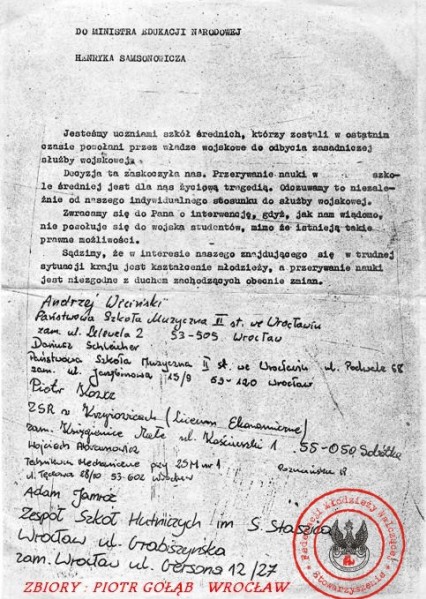 DO MINISTRA EDUKACJI NARODOWEJ
HENRYKA SAMSONOWICZA
Jesteśmy uczniami szkół średnich, którzy zostali w ostatnim
czasie powołani przez władze wojskowe do odbycia zasadniczej
służby wojskowej.
Decyzja ta zaskoczyła nas. Przerywanie nauki w szko-
le średniej jest dla nas życiową tragedią. Odczuwamy to niezale-
żnie od naszego indywidualnego stosunku do służby wojskowej.
Zwracamy się do Pana o interwencję, gdyż, jak nam wiadomo,
nie powołuje się do wojska studentów, mimo że istnieją takie
prawne możliwości.
Sądzimy, że w interesie naszego znajdującego się w trudnej
sytuacji kraju jest kształcenie młodzieży, a przerywanie nauki
jest niezgodne z duchem zachodzących obecnie zmian.
Andrzej
Państwowa Szkoła Muzyczna II st. we Wrocławiu
zam. ul. Lelewela 2 53-505 Wrocław
Dariusz Schleicher
Państwowa Szkoła Muzyczna II st. we Wrocławiu ul. Podwale 68
zam. ul. 15/9 53-120 Wrocław
Piotr
ZSR w (Liceum Ekonomiczne)
zam. Księginice Małe ul. 1 55-050 Sobótka
Wojciech Abramowicz
Technikum Mechaniczne przy ZSM nr 1 Poznańska
ul. Tęczowa 53-602 Wrocław
Adam Jamroz
Zespół Szkół Hutniczych im S. Staszica
Wrocław ul. Grabiszyńska
zam. Wrocław ul Gersona 12/27
Federacji Młodzieży Walczącej
Stowarzyszenie
ZBIORY : PIOTR GOŁĄB WROCŁAW